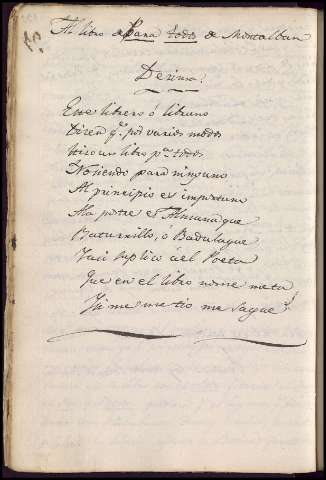 Al libro de Para todos de Montalban
Decima.
Este librero ó libruno
Diren q.e por varios modos
Hizo un libro p.a todos
No siendo para ninguno
Al principio es importuno
a la postre es Almanaque
Baturrillo, ó Badulaque
Y asi suplico á el Poeta
Que en el libro no me meta
Y si me metio me saque.